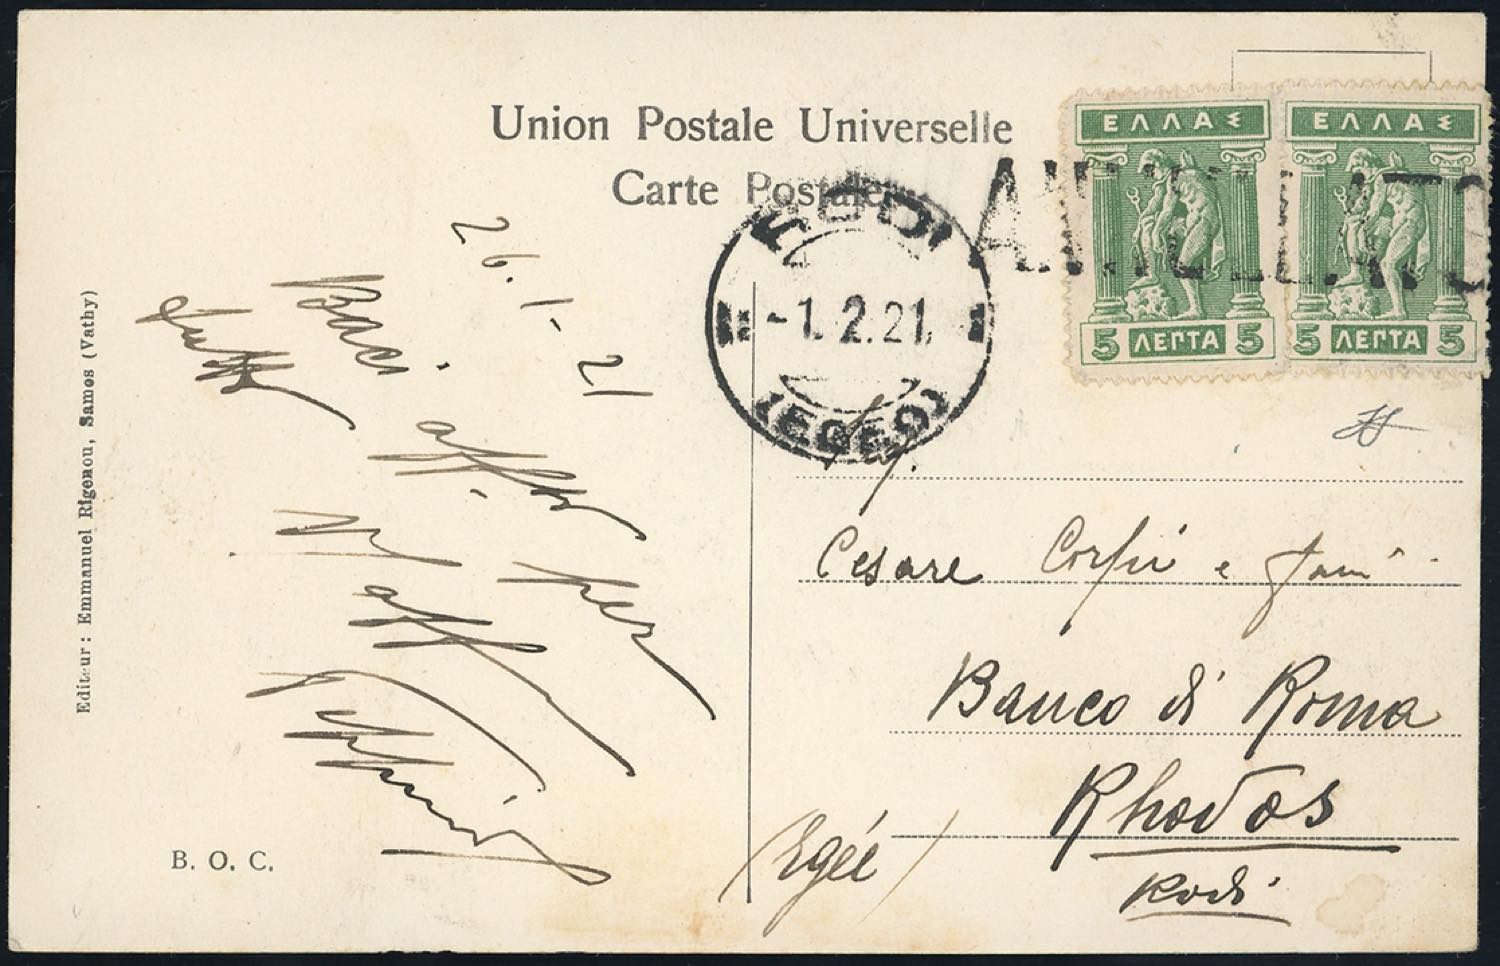 Union Postale Universelle
Carte Postale
ΕΛΛΑΣ
ΕΛΛΑΣ
5 ΛΕΠΤΑ 5
5 ΛΕΠΤΑ 5
ANNULLATO
RODI
-1.2.21
(EGEO)
26.1-21
Baci
per
Cesare Corfù e
Banco di Roma
Rhodos
Rodi
(Egée)
Editeur: Emmanuel Rigenou, Samos (Vathy)
B. O. C.